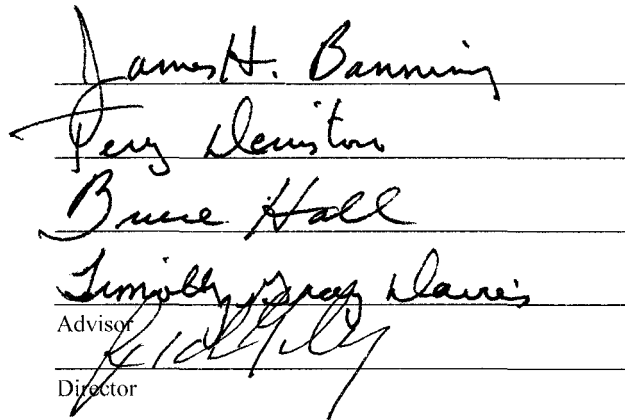 James H. Banning
Terry Deniston
Bruce Hall
Timothy Gray Davies
Advisor
Director